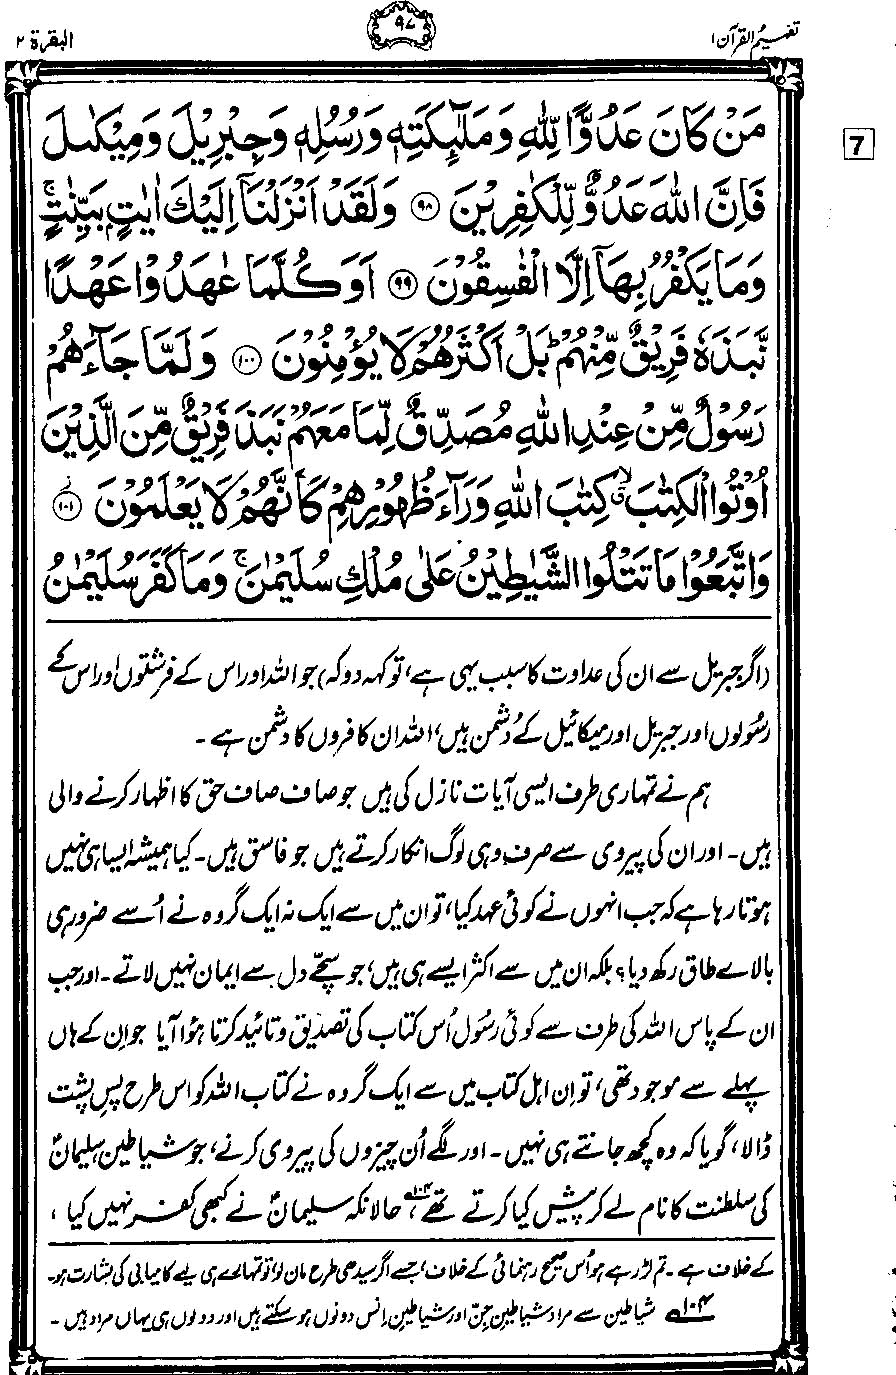 تفہیم القرآن ۱
۹۷
البقرة ۲
7
مَنْ كَانَ عَدُوًّا لِّلّٰهِ وَمَلٰٓئِكَتِهٖ وَرُسُلِهٖ وَجِبْرِيْلَ وَمِيْكٰىلَ
فَاِنَّ اللّٰهَ عَدُوٌّ لِّلْكٰفِرِيْنَ ﴿۹۸﴾ وَلَقَدْ اَنْزَلْنَاۤ اِلَيْكَ اٰيٰتٍۭ بَيِّنٰتٍۚ
وَمَا يَكْفُرُ بِهَاۤ اِلَّا الْفٰسِقُوْنَ ﴿۹۹﴾ اَوَكُلَّمَا عٰهَدُوْا عَهْدًا
نَّبَذَهٗ فَرِيْقٌ مِّنْهُمْؕ بَلْ اَكْثَرُهُمْ لَا يُؤْمِنُوْنَ ﴿۱۰۰﴾ وَلَمَّا جَآءَهُمْ
رَسُوْلٌ مِّنْ عِنْدِ اللّٰهِ مُصَدِّقٌ لِّمَا مَعَهُمْ نَبَذَ فَرِيْقٌ مِّنَ الَّذِيْنَ
اُوْتُوا الْكِتٰبَۙ كِتٰبَ اللّٰهِ وَرَآءَ ظُهُوْرِهِمْ كَاَنَّهُمْ لَا يَعْلَمُوْنَ ﴿۱۰۱﴾
وَاتَّبَعُوْا مَا تَتْلُوا الشَّيٰطِيْنُ عَلٰى مُلْكِ سُلَيْمٰنَۚ وَمَا كَفَرَ سُلَيْمٰنُ
(اگر جبریل سے ان کی عداوت کا سبب یہی ہے، تو کہہ دو کہ) جو اللہ اور اس کے فرشتوں اور اس کے
رسُولوں اور جبریل اور میکائیل کے دُشمن ہیں، اللہ ان کافروں کا دشمن ہے۔
ہم نے تمہاری طرف ایسی آیات نازل کی ہیں جو صاف صاف حق کا اظہار کرنے والی
ہیں۔ اور ان کی پیروی سے صرف وہی لوگ انکار کرتے ہیں جو فاسق ہیں۔ کیا ہمیشہ ایسا ہی نہیں
ہوتا رہا ہے کہ جب انہوں نے کوئی عہد کیا، تو ان میں سے ایک نہ ایک گروہ نے اُسے ضرور ہی
بالاے طاق رکھ دیا؟ بلکہ ان میں سے اکثر ایسے ہی ہیں، جو سچّے دل سے ایمان نہیں لاتے۔ اور جب
ان کے پاس اللہ کی طرف سے کوئی رسُول اُس کتاب کی تصدیق و تائید کرتا ہُوا آیا جو ان کے ہاں
پہلے سے موجود تھی، تو اِن اہل کتاب میں سے ایک گروہ نے کتاب اللہ کو اس طرح پسِ پشت
ڈالا، گویا کہ وہ کچھ جانتے ہی نہیں۔ اور لگے اُن چیزوں کی پیروی کرنے، جو شیاطین، سلیمانؑ
کی سلطنت کا نام لے کر پیش کیا کرتے تھے ۱۰۴؎، حالانکہ سلیمانؑ نے کبھی کفر نہیں کیا،
کے خلاف ہے۔ تم لڑ رہے ہو اُس صحیح رہنمائی کے خلاف، جسے اگر سیدھی طرح مان لو تو تمہارے ہی لیے کامیابی کی بشارت ہو۔
۱۰۴؎ شیاطین سے مراد شیاطینِ جِنّ اور شیاطینِ اِنس دونوں ہو سکتے ہیں اور دونوں ہی یہاں مراد ہیں۔